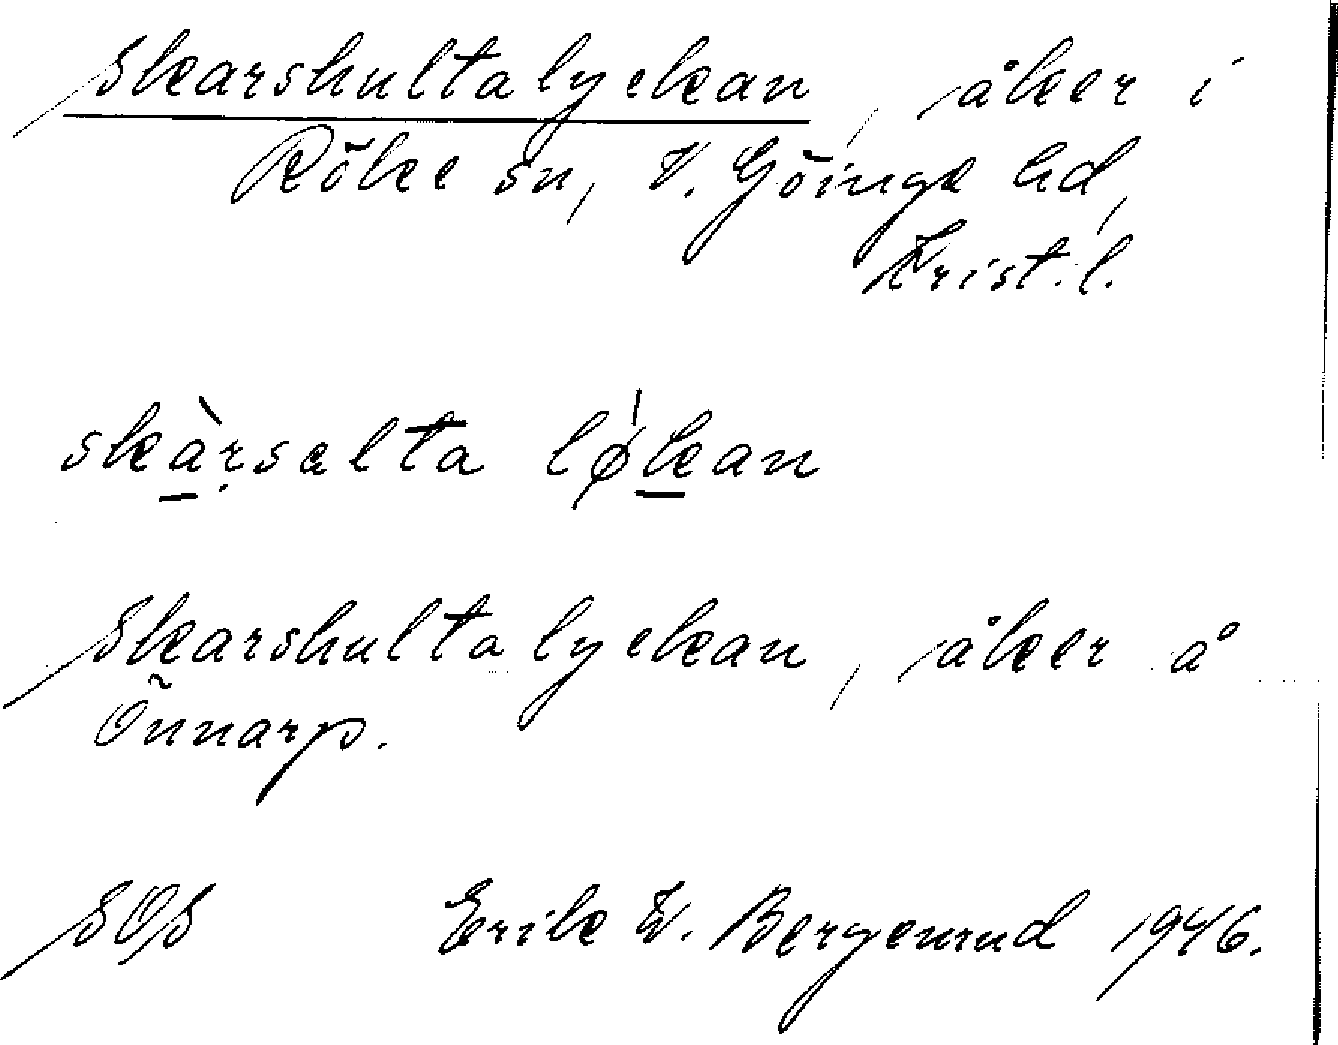 Skarshultalyckan, åker i
Röke sn, V. Göinge hd,
Krist.l.
skàr̤sølta løkan
Skarshultalyckan, åker å
Önnarp.
SOS Erik W. Bergenrud 1946.